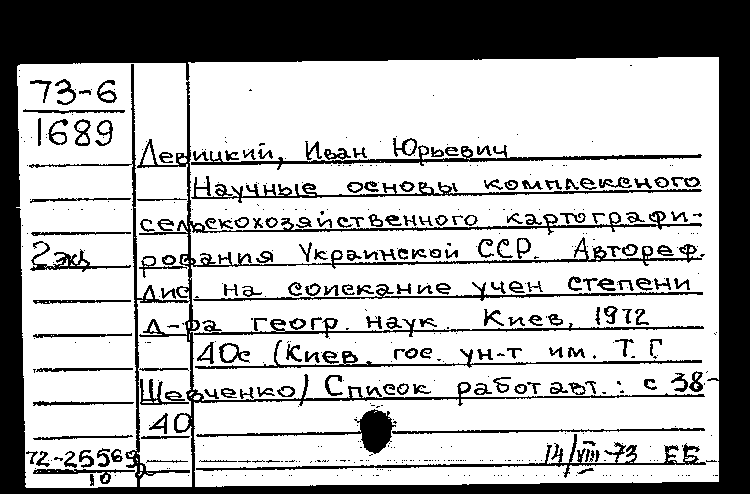 73-6
1689
Левицкий, Иван Юрьевич
Научные основы комплексного
сельскохозяйственного картографи-
2 экз
рования Украинской ССР. Автореф.
дис. на соискание учен степени
д-ра геогр. наук. Киев, 1972
40с (Киев. гос. ун-т им. Т. Г
Шевченко) Список работ авт.: с 38-
40
72-25569
10
14/VIII-73 ЕБ